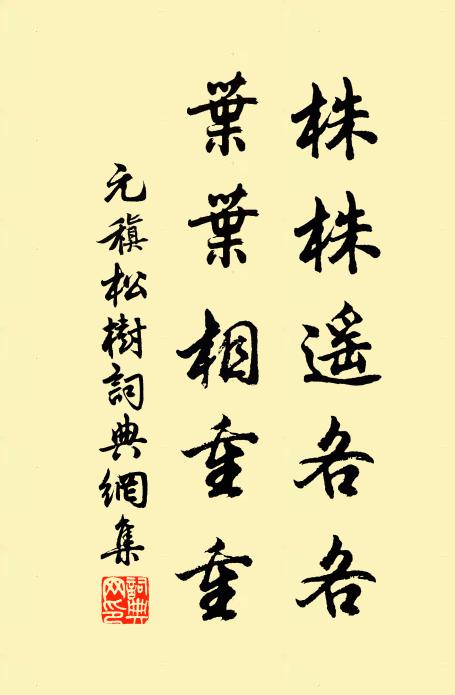 株株遥各各
葉葉相重重
元稹松樹詞典網集
詞典網印